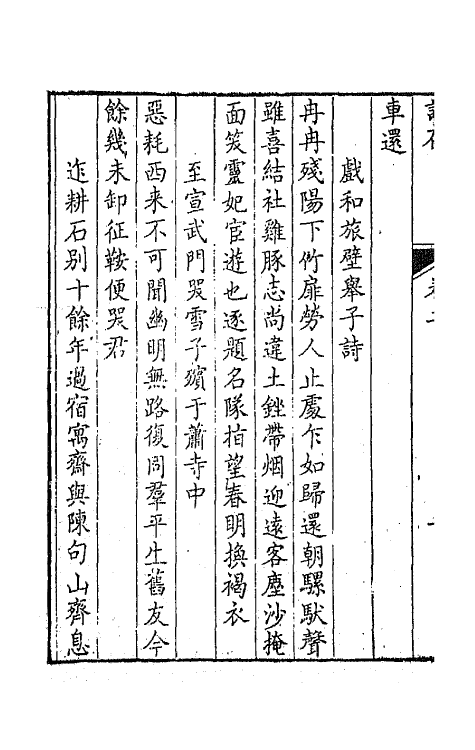 車還
戲和旅壁舉子詩
冉冉殘陽下竹扉勞人止處乍如歸還朝騾馱聲
雖喜結社雞豚志尚違土銼帶烟迎遠客塵沙掩
面笑靈妃宦遊也逐題名隊指望春明換褐衣
至宣武門哭雪子殯于蕭寺中
惡耗西来不可聞幽明無路復同羣平生舊友今
餘幾未卸征鞍便哭君
迮耕石别十餘年過宿寓齋與陳句山齊息